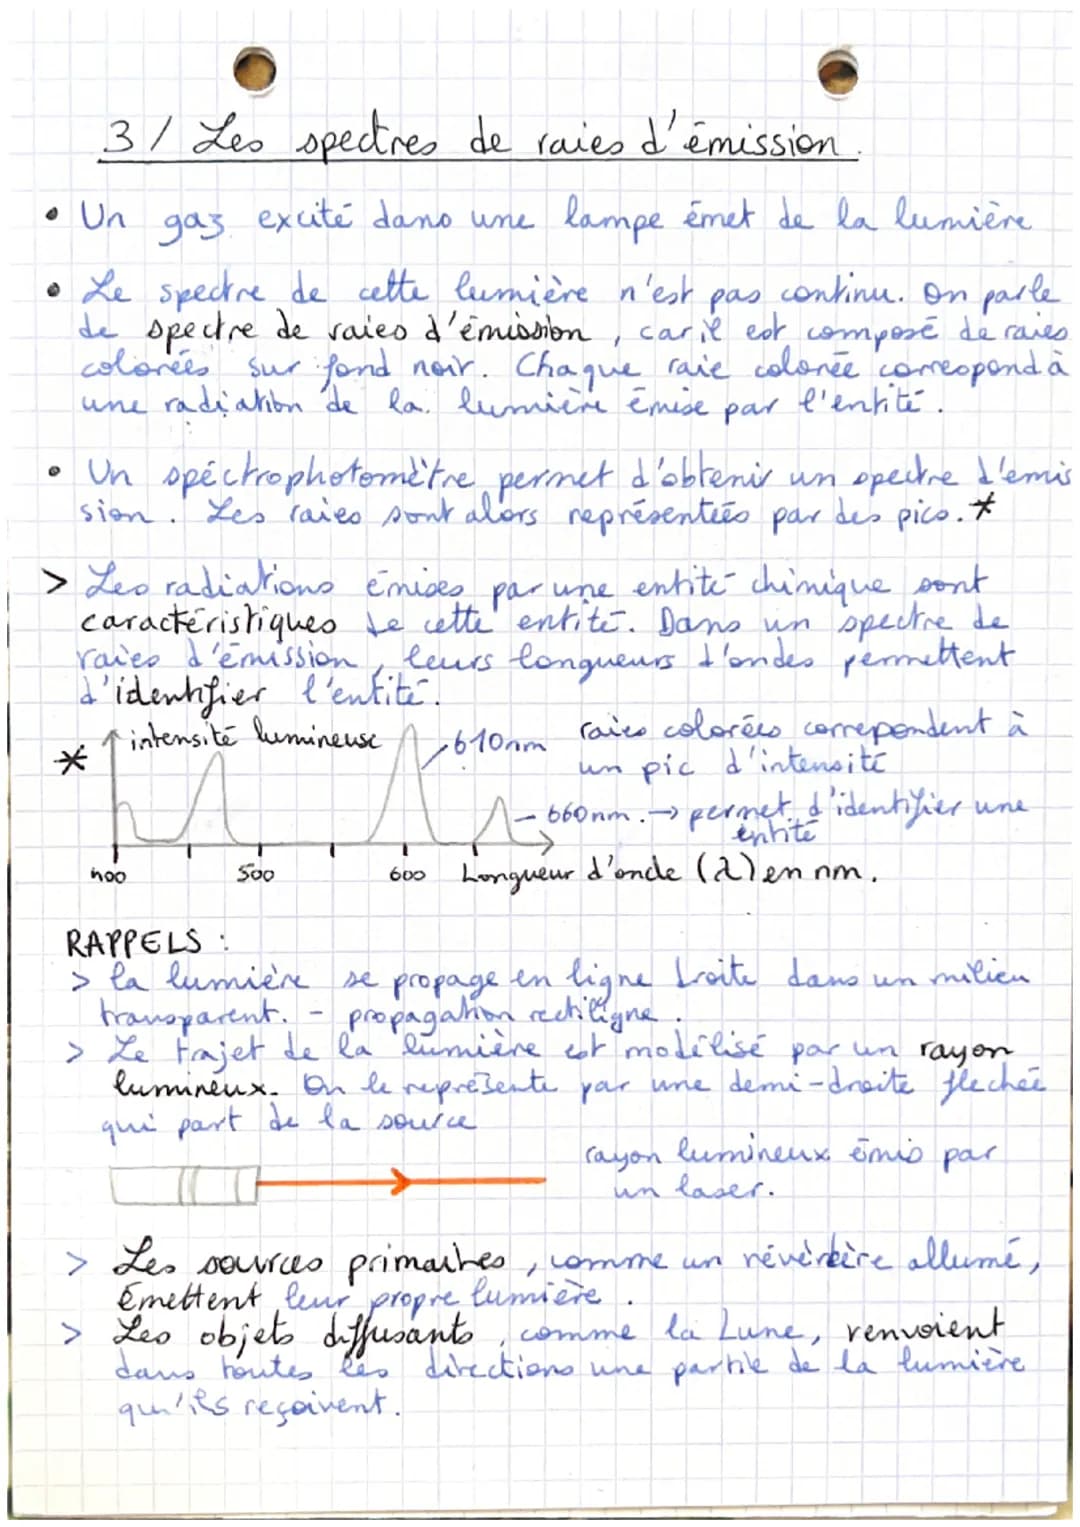 3/ Les spectres de raies d'émission.
• Un gaz excité dans une lampe émet de la lumière
• Le spectre de cette lumière n'est pas continu. On parle
de spectre de raies d'émission, car il est composé de raies
colorées sur fond noir. Chaque raie colorée correspond à
une radiation de la lumière émise par l'entité.
• Un spéctrophotomètre permet d'obtenir un spectre d'émis
sion. Les raies sont alors représentées par des pics.*
> Les radiations émises par une entité chimique sont
caractéristiques de cette entité. Dans un spectre de
raies d'émission, leurs longueurs d'ondes permettent
d'identifier l'entité.
* intensité lumineuse 610nm raies colorées correpondent à
un pic d'intensité
660nm. → permet d'identifier une
entité
400 500 600 Longueur d'onde (λ) en nm.
RAPPELS :
> la lumière se propage en ligne droite dans un milieu
transparent. - propagation rectiligne.
> Le trajet de la lumière est modélisé par un rayon
lumineux. On le représente par une demi-droite flechée
qui part de la source
rayon lumineux émis par
un laser.
> Les sources primaires, comme un révèrbère allumé,
émettent leur propre lumière.
> Les objets diffusants, comme la Lune, renvoient
dans toutes les directions une partie de la lumière
qu'ils reçoivent.